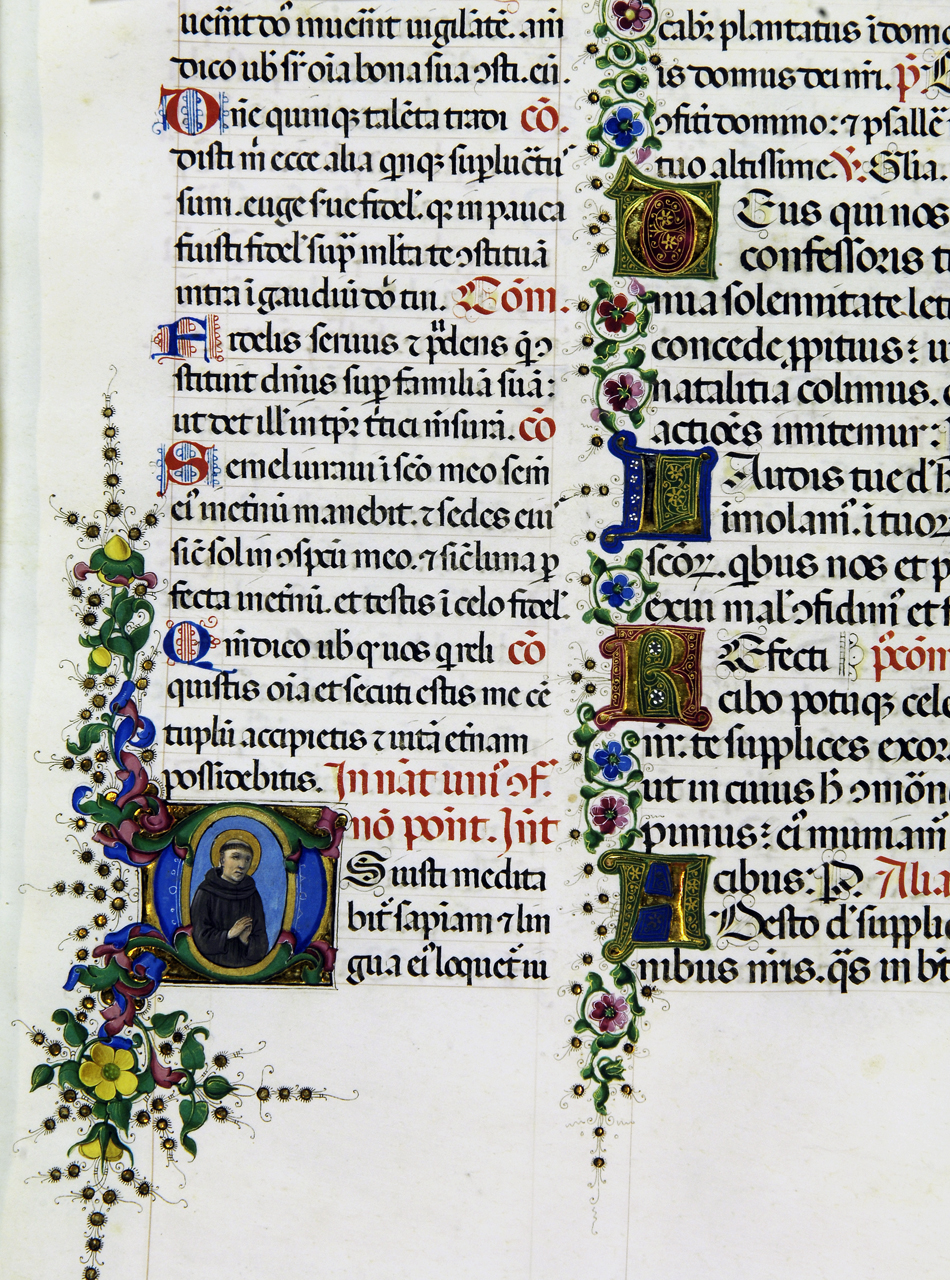 uenit dn̄s inuenit uigilātē. amē
dico ub̄ sr̄ oīa bona sua ɔsti. eū.
Dn̄e quinqꝫ talēta tradi cō.
disti m̄ ecce alia qnqꝫ suꝑlucr̄tꝰ
sum. euge sꝰue fidel'. qꝛ in pauca
fuisti fidel' suꝑ m̄lta te ɔstituā
intra ī gaudiū dō tui. Com̄.
Fidelis seruus ⁊ p̄dens q̄ ɔ
stituit dn̄us suꝑ familiā suā:
ut det ill' in tp̄ꝛ t̓tici m̄surā. cō
Semel iuraui ī scō meo sem̄
eiꝰ ī etnū manebit. ⁊ sedes eiꝰ
sic̄ sol in ɔspcū meo. ⁊ sic̄ luna ꝑ
fecta ī etnū. et testis ī celo fidel'.
Am̄ dico ub̄ qꝰ uos q reli cō
quistis oīa et secuti estis me cē
tuplū accipietis ⁊ uitā et̄nam
possidebitis. In nāt uniꝰ ɔf.
nō pont. Int̄
Os iusti medita
bit̓ sapīam ⁊ lin
gua eiꝰ loquet̓ iu
cabꝛ plantatus ī domo
is domus dei nr̄i. p̄
ɔfiteri domino: ⁊ psallē
tuo altissime. V. Glia.
Deus qui nos
confessoris t
nua solennitate leti
concede ꝓpitius: u
natalitīa colimus.
actiōēs imitemur:
Laudis tue d̄
imolamꝰ. ī tuor
scōꝝ. qbus nos et p
exui mal' ɔfidimꝰ et
Refecti p̄cōm
cibo potuqꝫ cele
nr̄. te supplices exor
ut in cuius h̄ ɔmōn
pimus: eiꝰ muniam̄
cibus: P. Alia
Adesto d̄. suppli
nibus nr̄is. q̄s in bt̄